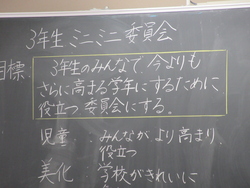 3年生ミニミニ委員会
目標
3年生のみんなで今よりも
さらに高まる学年にするために
役立つ委員会にする。
児童 みんながより高まり、
役立つ
美化 学校がきれいに